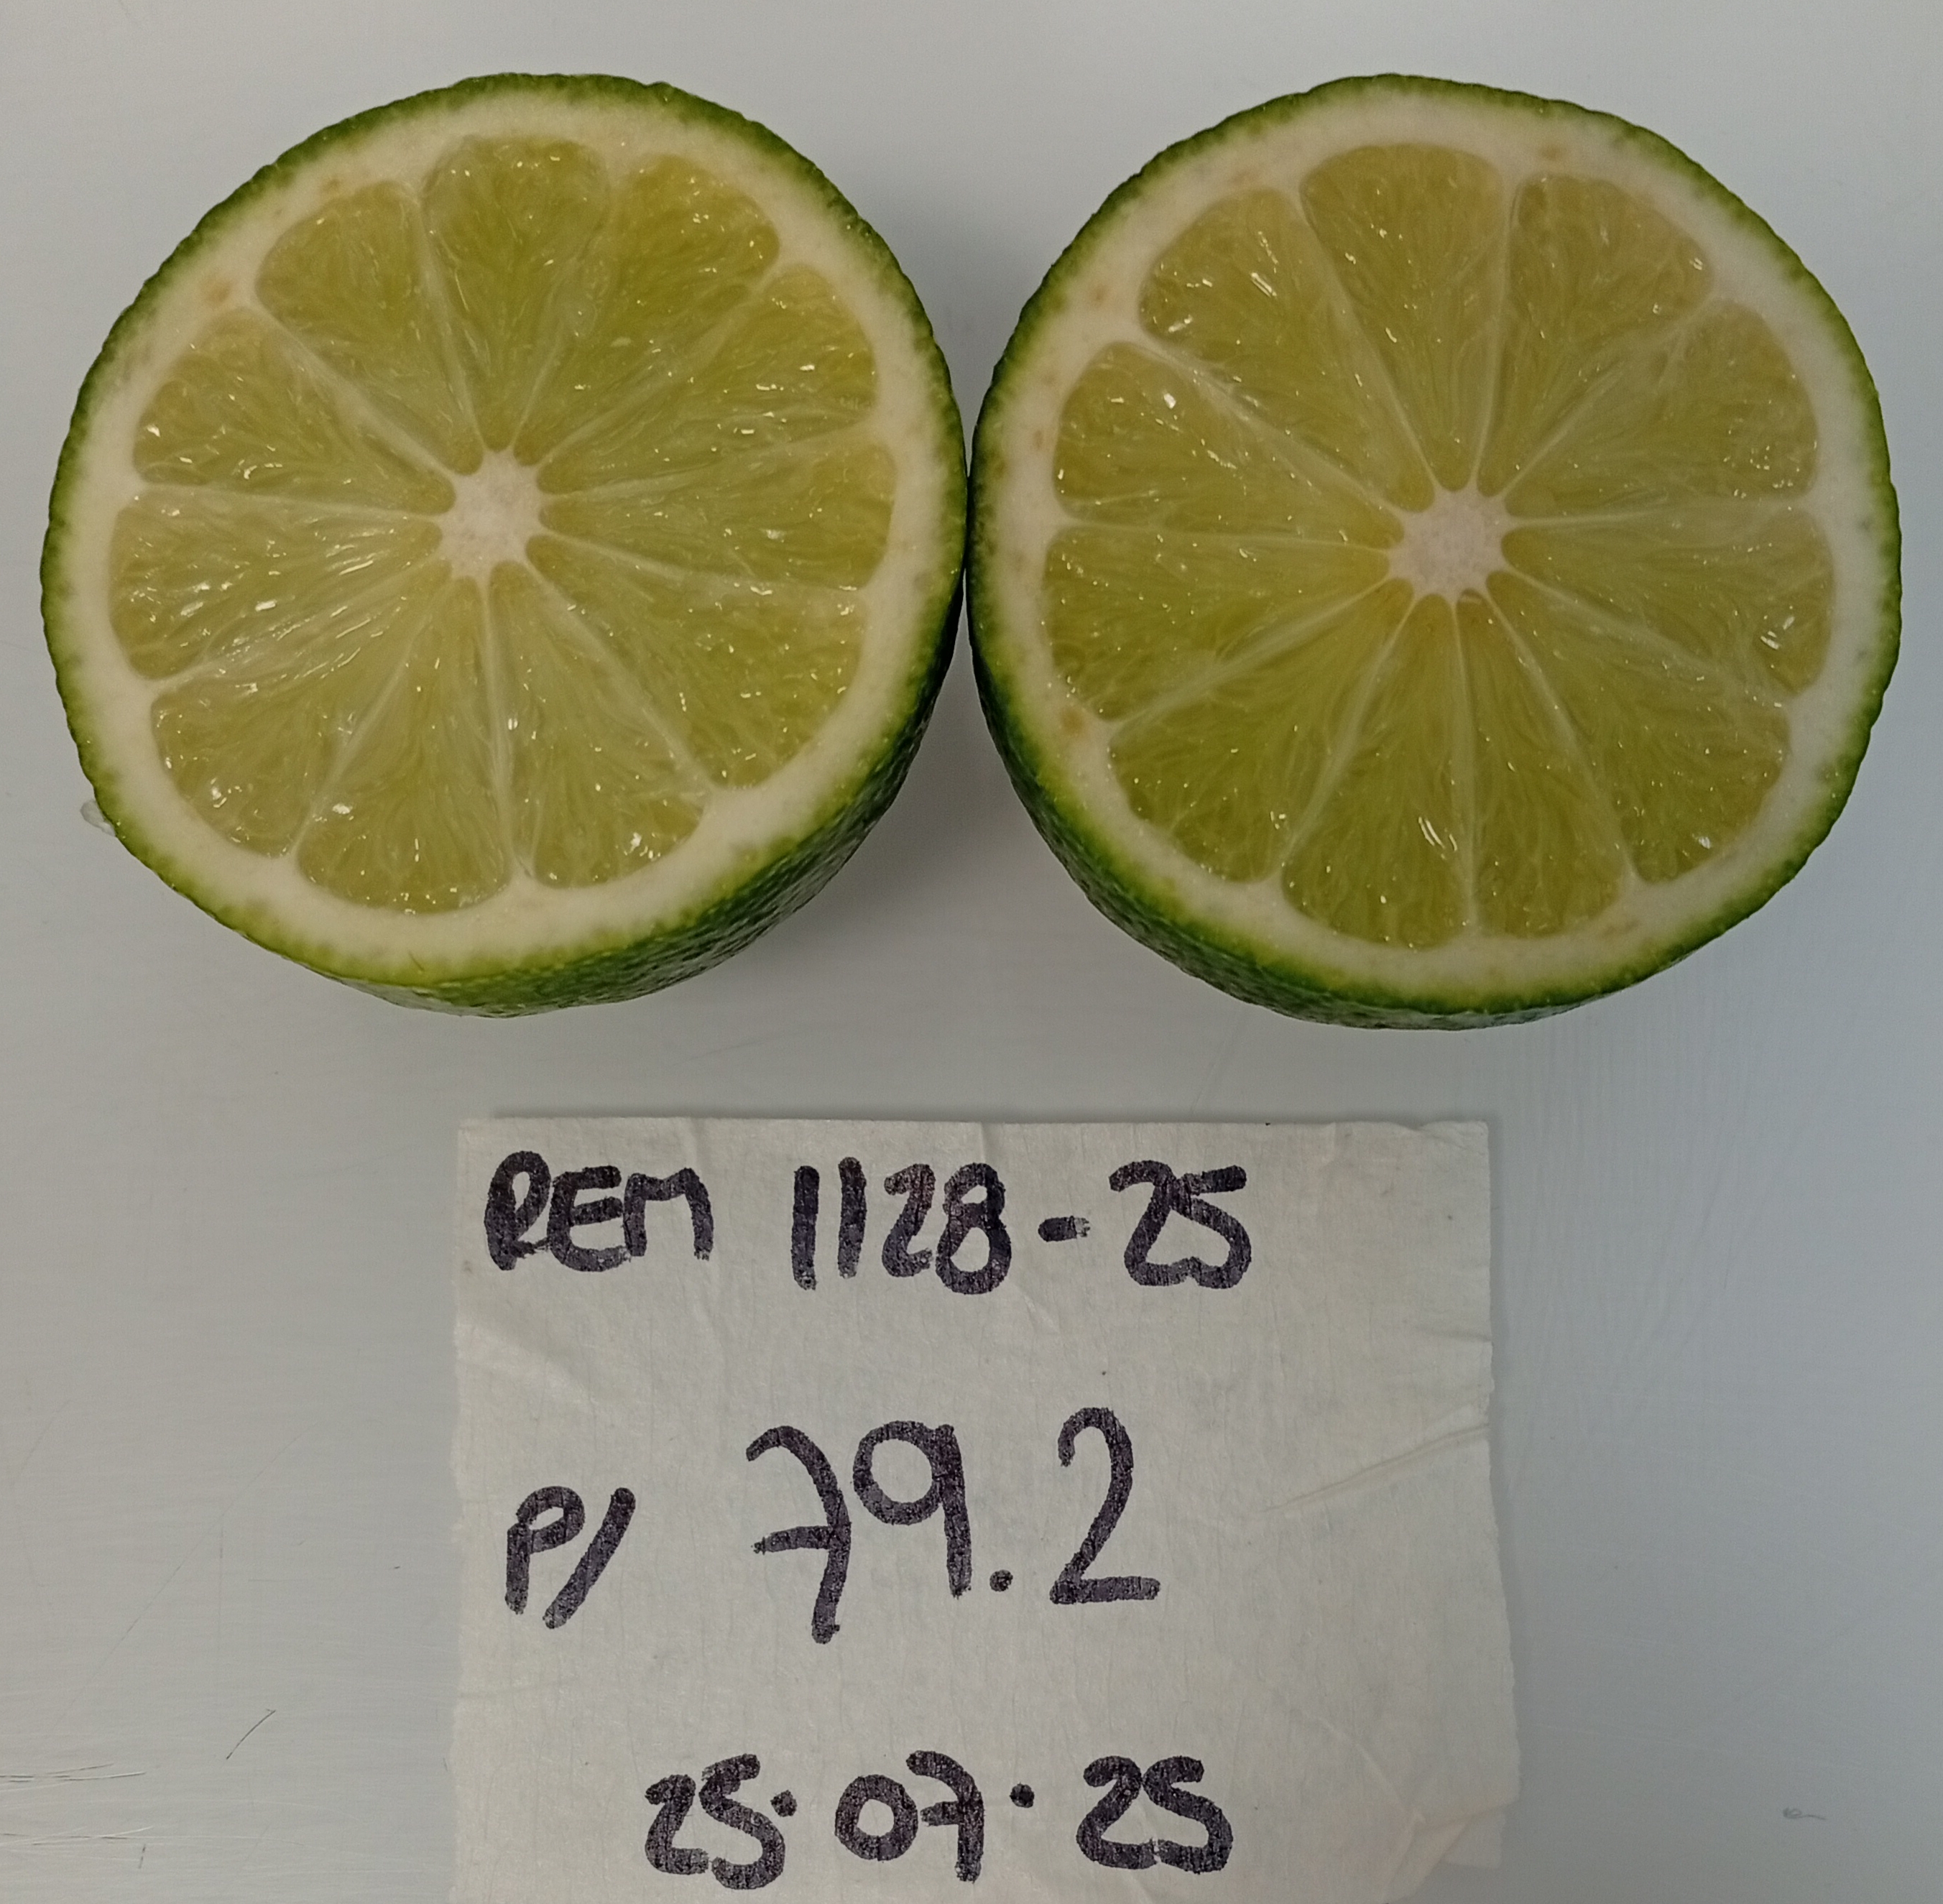 REM 1128-25
P/ 79.2
25.07.25